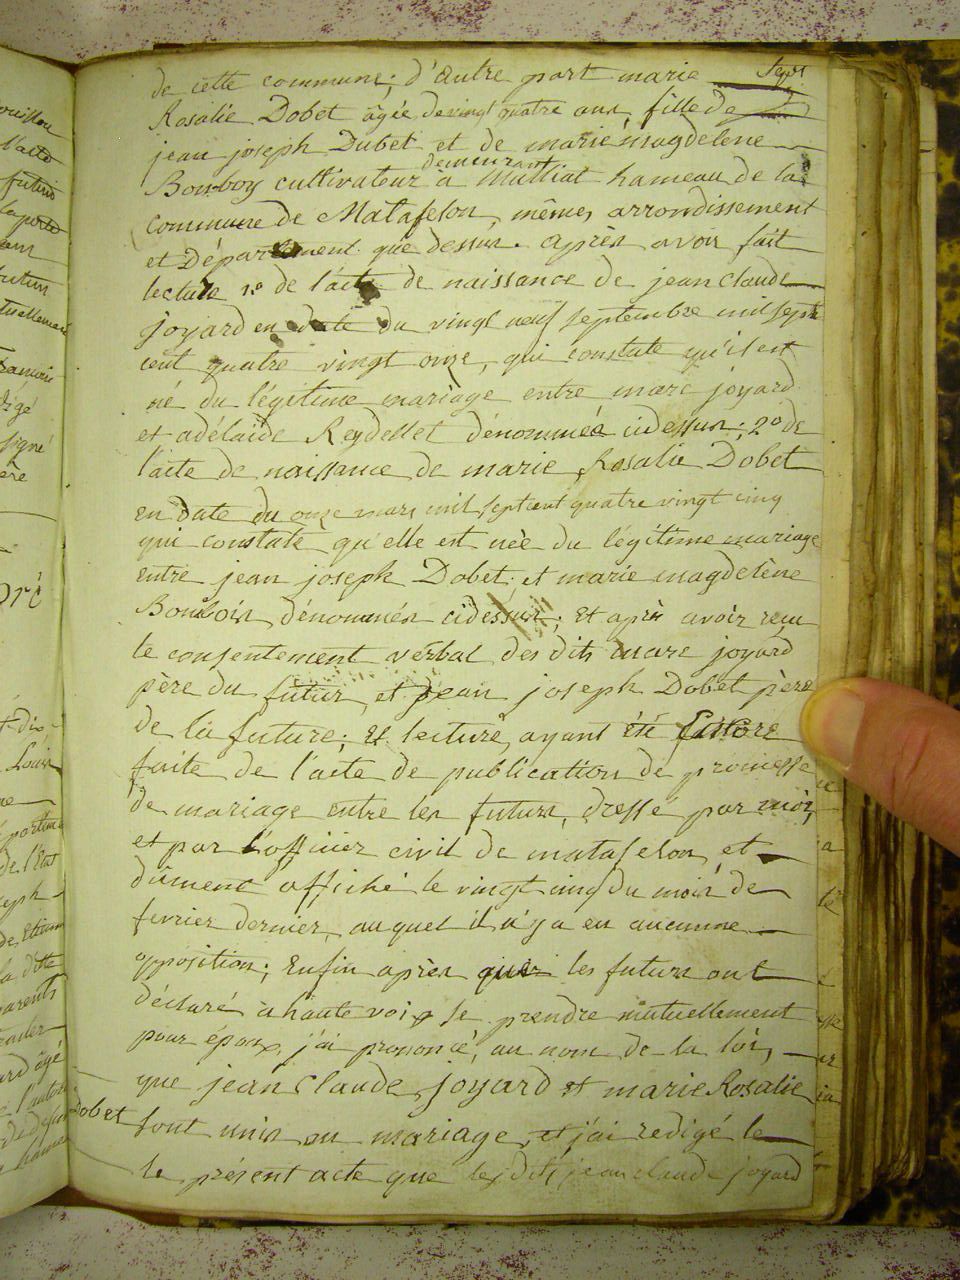 Sept
de cette commune; d'autre part marie
Rosalie Dobet âgée de vingt quatre ans, fille de
jean joseph Dubet et de marie magdelene
demeurant
Bonboy cultivateur à Mattiat hameau de la
Commune de Matafelon, mêmes arrondissement
et Département que dessus. après avoir fait
lecture 1º de l'acte de naissance de jean claude
joyard en date du vingt neuf septembre mil sept
cent quatre vingt onze, qui constate qu'il est
né du légitime mariage entre marc joyard
et adélaide Reydellet dénommés cidessus; 2º de
l'acte de naissance de marie Rosalie Dobet
en date du onze mars mil sept cent quatre vingt cinq
qui constate qu'elle est née du légitime mariage
entre jean joseph Dobet et marie magdelène
Bonbois dénommés cidessus; et après avoir reçu
le consentement verbal des dits marc joyard
père du futur, et jean joseph Dobet père
de la future; et lecture ayant été Encore
faite de l'acte de publication de promesse
de mariage entre les futurs, dressé par moi,
et par l'officier civil de matafelon, et
dûment affiché le vingt cinq du mois de
fevrier dernier, auquel il n'y a eu aucunne
opposition; Enfin après que les futurs ont
déclaré à haute voix se prendre mutuellement
pour époux, j'ai prononcé, au nom de la loi,
que jean Claude joyard et marie Rosalie
Dobet sont unis en mariage, et j'ai redigé le
le présent acte que les dits jean claude joyard